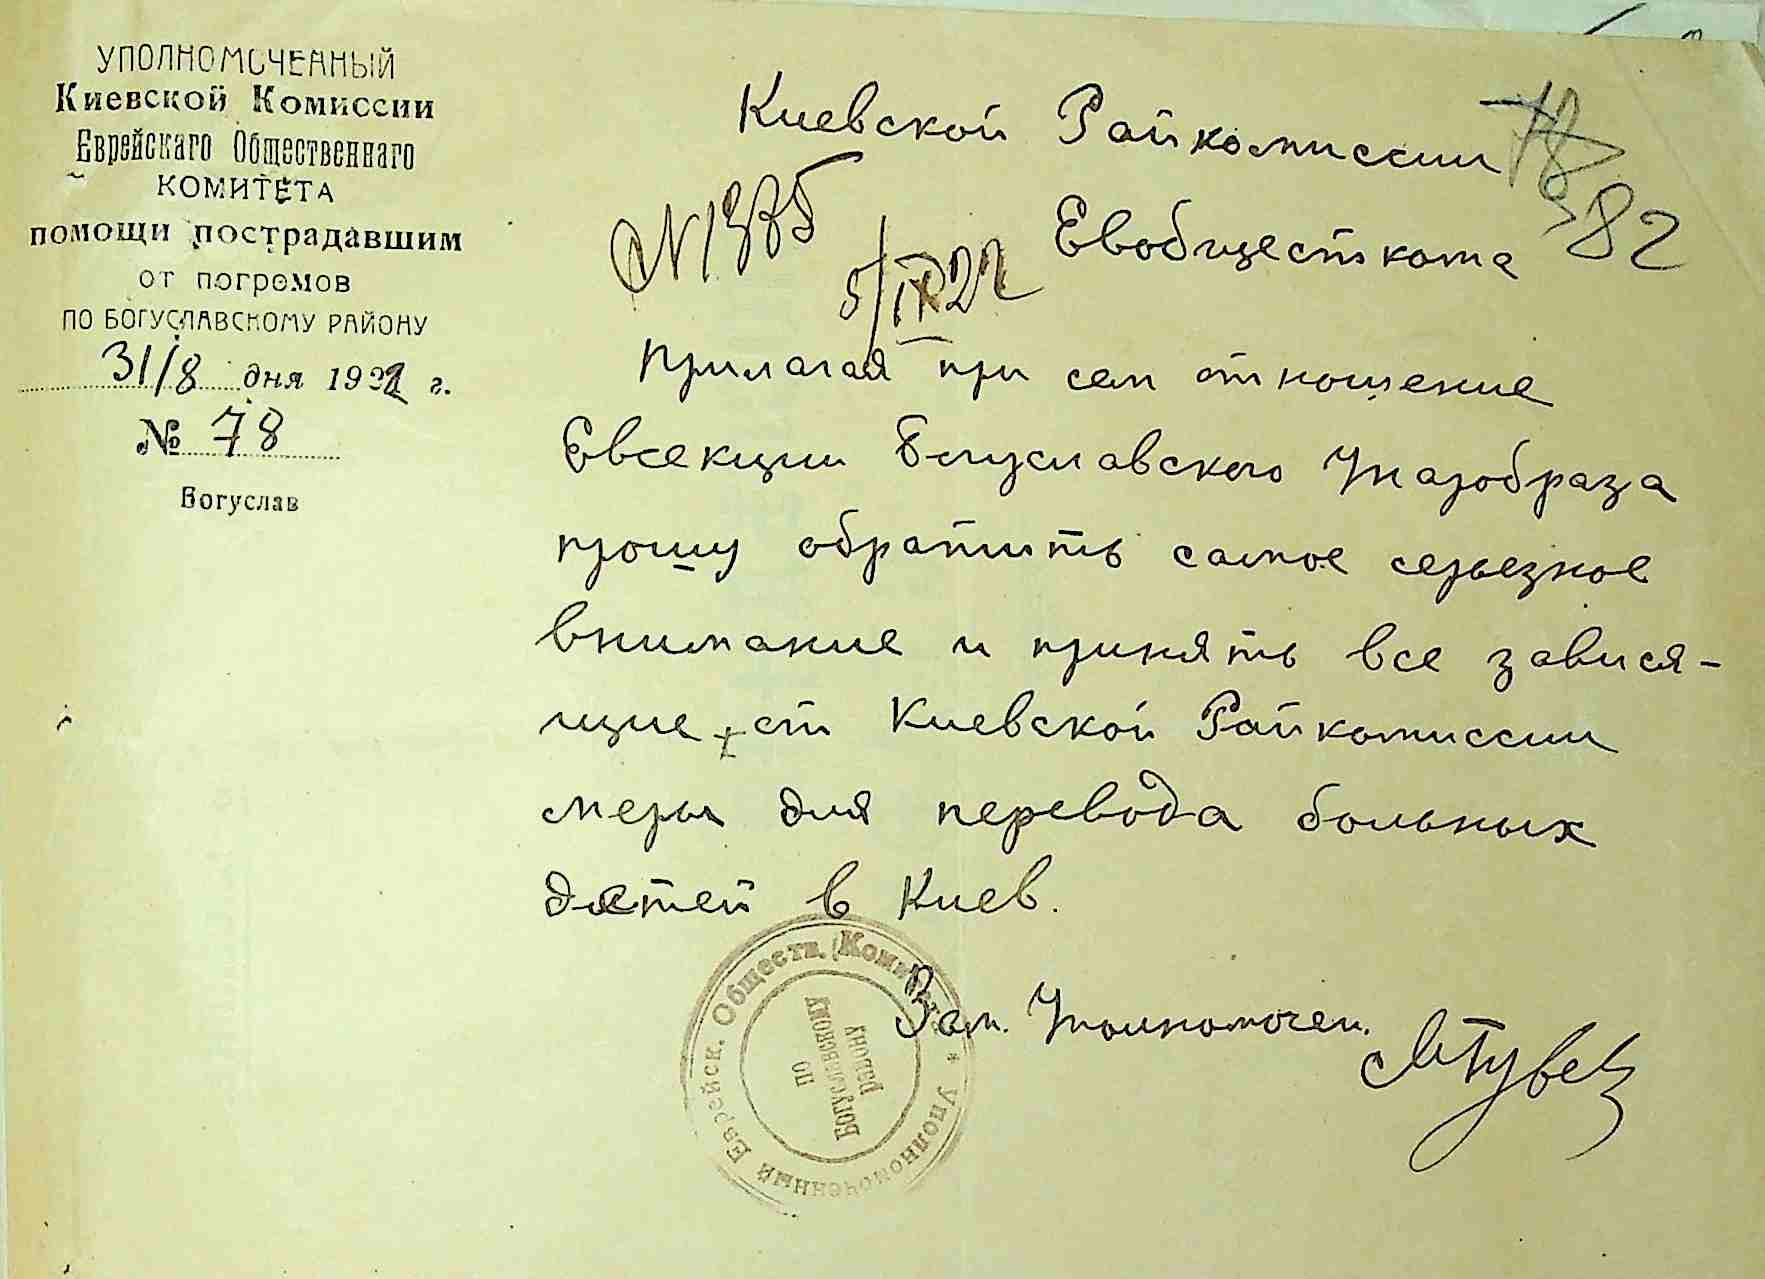 УПОЛНОМОЧЕННЫЙ
Киевской Комиссии
Еврейскаго Общественнаго
КОМИТЕТА
помощи пострадавшим
от погромов
ПО БОГУСЛАВСКОМУ РАЙОНУ
31/8 дня 1922 г.
№ 78
Богуслав
Киевской Райкомиссии
Евобщесткома
78
82
N 1375
5/IX 22
Прилагая при сем отношение
Евсекции Богуславского Упаробраза
прошу обратить самое серьезное
внимание и принять все завися-
щие от Киевской Райкомиссии
меры для перевода больных
детей в Киев.
Зам. Уполномочен.
Уполномоченный Еврейск. Обществ. Комитета
по
Богуславскому
району